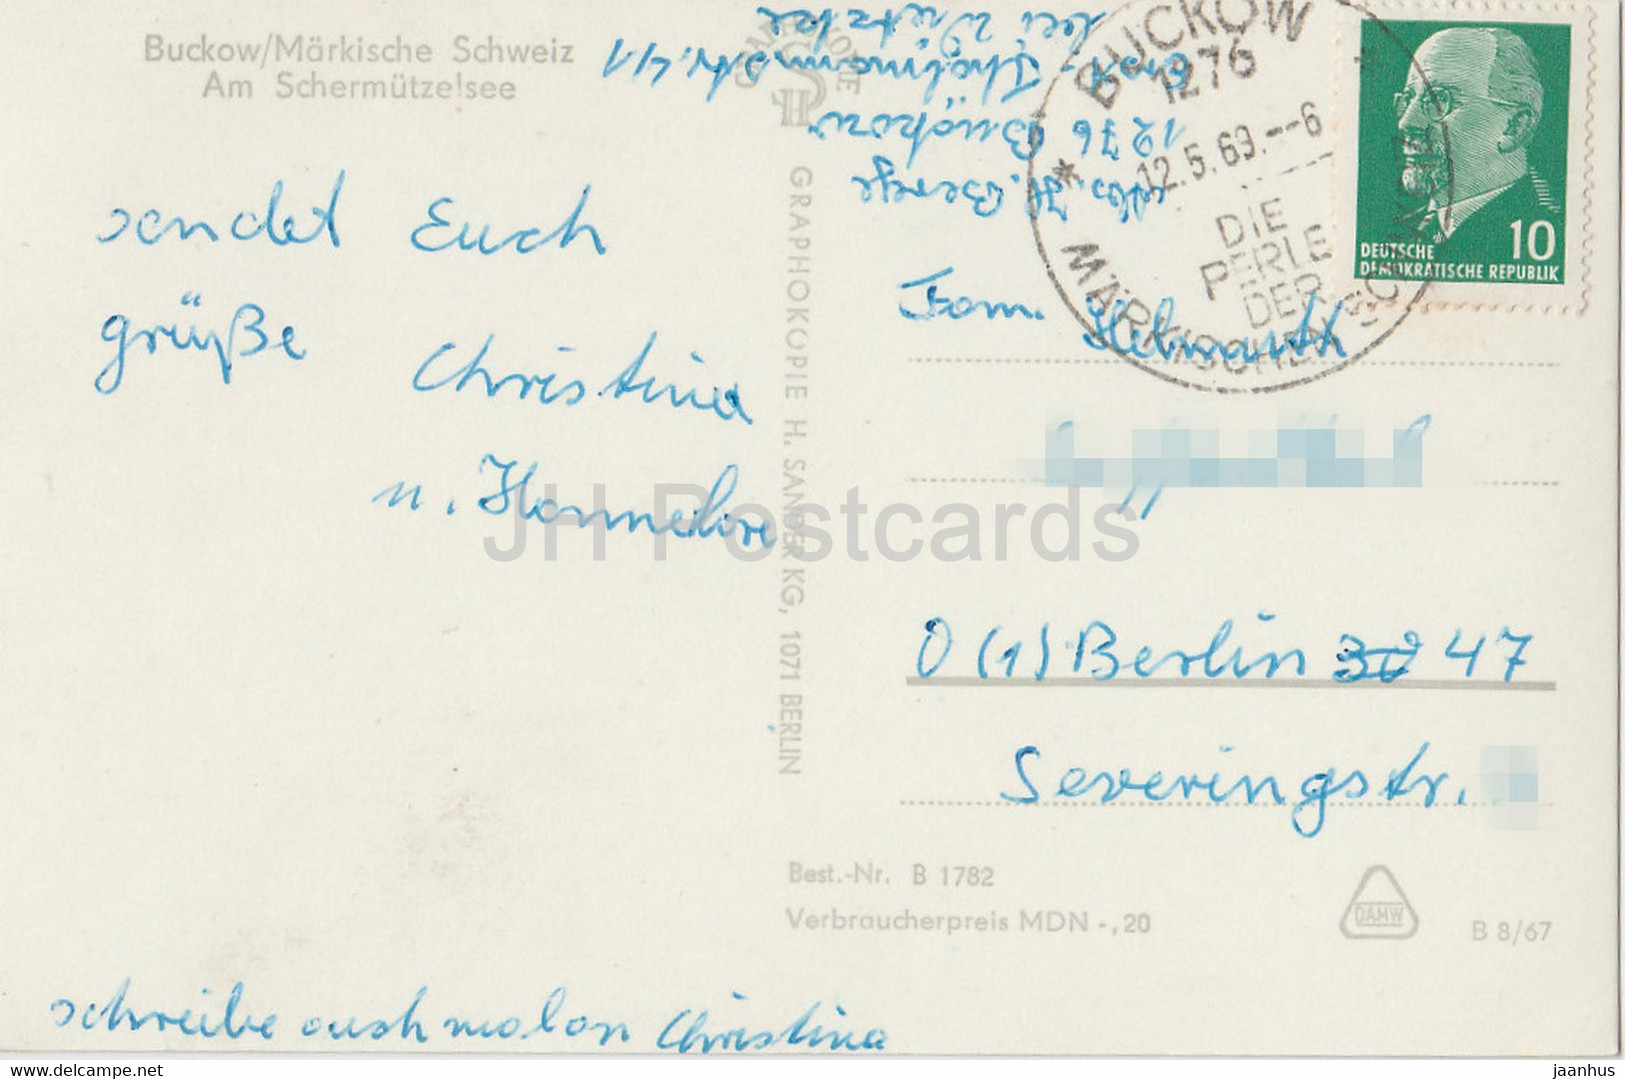 Buckow/Märkische Schweiz
Am Schermützelsee
sendet Euch
grüße Christina
u. Hannelore
schreibe auch mal an Christina
GRAPHOKOPIE H. SANDER KG, 1071 BERLIN
Abs. H. Berge
1276 Buckow
Ernst-Thälmannstr. 41
bei Wietzke
BUCKOW
1276
12.5.69.--6
DIE
PERLE
DER
MÄRKISCHEN SCHWEIZ
10
DEUTSCHE
DEMOKRATISCHE REPUBLIK
Fam. Helmuth
O (1) Berlin 47
Severingstr.
Best.-Nr. B 1782
Verbraucherpreis MDN -,20
DAMW
B 8/67
JH Postcards
EU
jaanhus